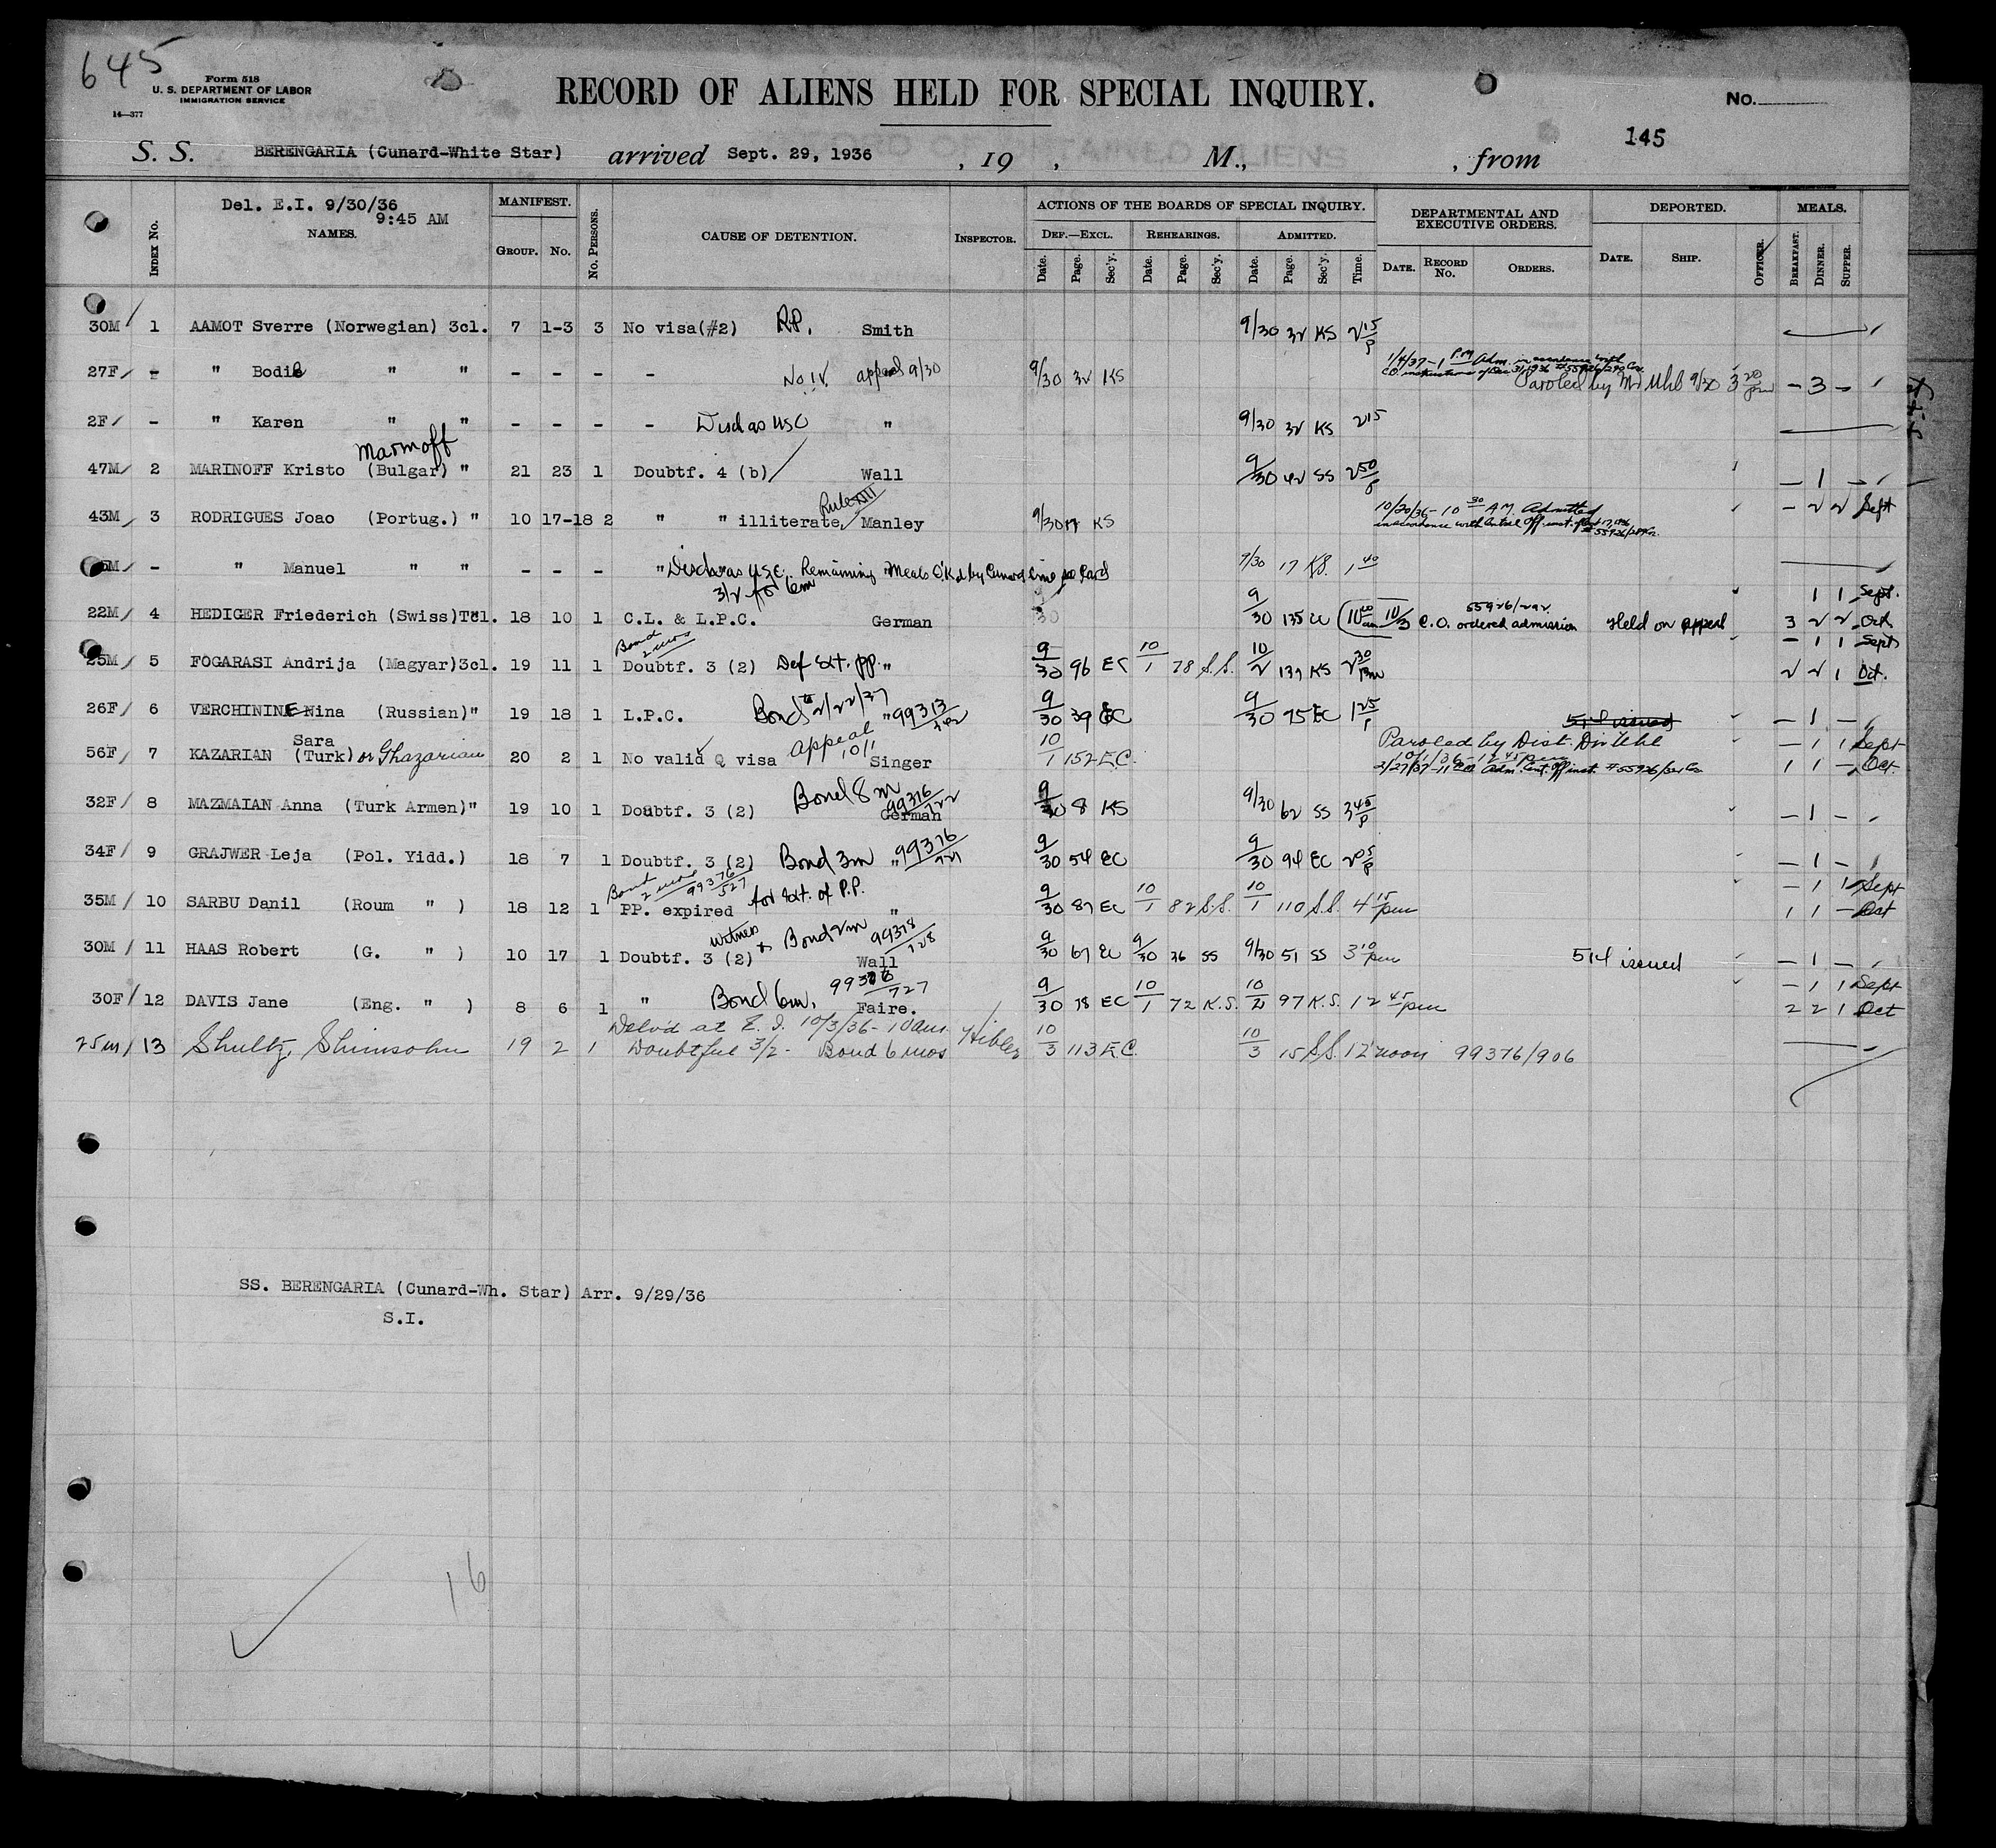 645
Form 518
U. S. DEPARTMENT OF LABOR
IMMIGRATION SERVICE
14—377
RECORD OF ALIENS HELD FOR SPECIAL INQUIRY.
No.
145
S. S. BERENGARIA (Cunard-White Star) arrived Sept. 29, 1936 , 19 , M., , from
Del. E.I. 9/30/36
9:45 AM
INDEX No. NAMES. MANIFEST. GROUP. No. No. PERSONS. CAUSE OF DETENTION. INSPECTOR. ACTIONS OF THE BOARDS OF SPECIAL INQUIRY. DEF.—EXCL. Date. Page. Sec'y. REHEARINGS. Date. Page. Sec'y. ADMITTED. Date. Page. Sec'y. Time. DEPARTMENTAL AND EXECUTIVE ORDERS. DATE. RECORD No. ORDERS. DEPORTED. DATE. SHIP. OFFICER. MEALS. BREAKFAST. DINNER. SUPPER.
30M 1 AAMOT Sverre (Norwegian) 3cl. 7 1-3 3 No visa(#2) R.P. Smith 9/30 32 KS 2 15/P
1/4/37-1 P.M. Adm. in accordance with
C.O. instructions of Dec 31, 1936 # 55926/290 Co.
27F - " Bodil " " - - - - No I.V. appeal 9/30 9/30 32 KS Paroled by Mr Uhl 9/30 3 20 pm - 3 -
2F - " Karen " " - - - - Disch as USC " 9/30 32 KS 2 15
Marmoff
47M 2 MARINOFF Kristo (Bulgar) " 21 23 1 Doubtf. 4 (b) Wall 9/30 42 SS 2 50/P - 1 -
Rule XIII
43M 3 RODRIGUES Joao (Portug.) " 10 17-18 2 " " illiterate Manley 9/30 17 KS 10/20/36 - 10 30 A.M. Admitted - 2 2 Sept
in accordance with Central Off. inst. of Oct 17, 1936
# 55926/289 Co.
M - " Manuel " " - - - " Disch as USC. Remaining Meals O'Kd by Cunard Line 9/30 17 KS. 1 40
3/2 for 6m
1 1 Sept.
22M 4 HEDIGER Friederich (Swiss)Tcl. 18 10 1 C.L. & L.P.C. German 9/30 135 EC 10 00 am 10/3 C.O. ordered admission 55926/292 Held on appeal 3 2 2 Oct
Bond 2 mos
- 1 1 Sept
25M 5 FOGARASI Andrija (Magyar)3cl. 19 11 1 Doubtf. 3 (2) Def Ext. pp. " 9/30 96 EC 10/1 78 S.S. 10/2 137 KS 2 30 pm 2 2 1 Oct.
26F 6 VERCHININE Nina (Russian)" 19 18 1 L.P.C. Bond to 2/22/37 " 99313 9/30 39 EC 9/30 75 EC 1 25/P 514 issued - 1 -
Sara
Paroled by Dist. Dir Uhl - 1 1 Sept
56F 7 KAZARIAN (Turk) or Ghazarian 20 2 1 No valid Q visa appeal 10/1 Singer 10/1 152 E.C. 10/1/36 - 12 45 pm
2/27/37 - 11 Adm. Cent. Off inst. # 55926/ Co 1 1 - Oct.
32F 8 MAZMAIAN Anna (Turk Armen)" 19 10 1 Doubtf. 3 (2) Bond 8 m 99376/722 German 9/30 8 KS 9/30 62 SS 3 45/P - 1 -
34F 9 GRAJWER Leja (Pol. Yidd.) 18 7 1 Doubtf. 3 (2) Bond 3m " 99376/721 9/30 54 EC 9/30 94 EC 2 05/P - 1 -
Bond 2 mos 99376/527 for Ext. of P.P.
- 1 1 Sept
35M 10 SARBU Danil (Roum " ) 18 12 1 PP. expired " 9/30 87 EC 10/1 82 S.S. 10/1 110 S.S. 4 15 pm 1 1 - Oct
witness + Bond 2m 99378/728
30M 11 HAAS Robert (G. " ) 10 17 1 Doubtf. 3 (2) Wall 9/30 67 EC 9/30 36 SS 9/30 51 SS 3 10 pm 514 issued - 1 -
- 1 1 Sept
30F 12 DAVIS Jane (Eng. " ) 8 6 1 " Bond 6m. 99376/727 Faire. 9/30 78 EC 10/1 72 K.S. 10/2 97 K.S. 12 45 pm 2 2 1 Oct
Delv'd at E.I. 10/3/36 - 10 am
25m 13 Shultz, Shimsohn 19 2 1 Doubtful 3/2 - Bond 6 mos Hibler 10/3 113 E.C. 10/3 15 S.S. 12 noon 99376/906
SS. BERENGARIA (Cunard-Wh. Star) Arr. 9/29/36
S.I.
16